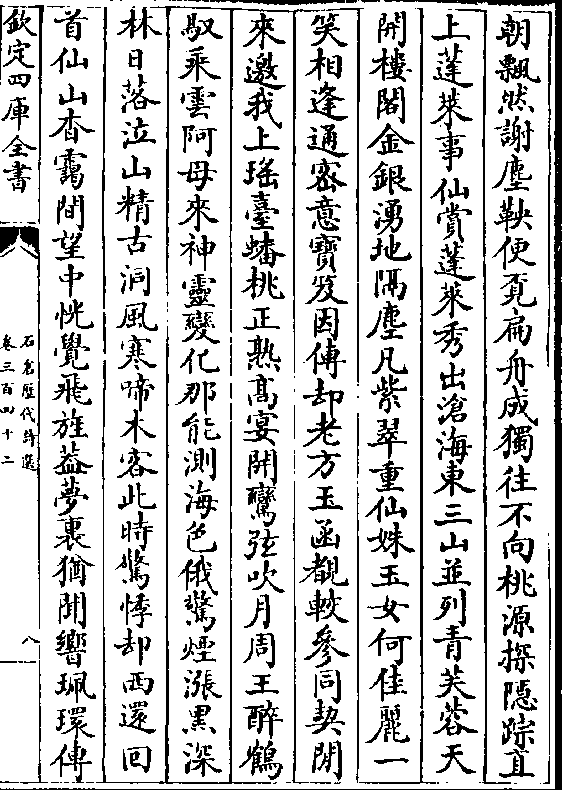 朝飄然謝塵鞅便覔扁舟成獨往不向桃源探隠踪直
上蓬萊事仙賞蓬萊秀出滄海東三山並列青芙蓉天
開樓閣金銀湧地隔塵凡紫翠重仙姝玉女何佳麗一
笑相逢通宻意寳笈因傳却老方玉函覩較參同契閒
來邀我上瑶臺蟠桃正熟髙宴開鸞弦吹月周王醉鶴
馭乘雲阿母來神靈變化那能測海色俄驚煙漲黒深
林日落泣山精古洞風寒啼木客此時驚悸却西還回
首仙山杳靄間望中恍覺飛旌葢夢裏猶聞響珮環傳
欽定四庫全書
石倉歴代詩選
卷三百四十二
八